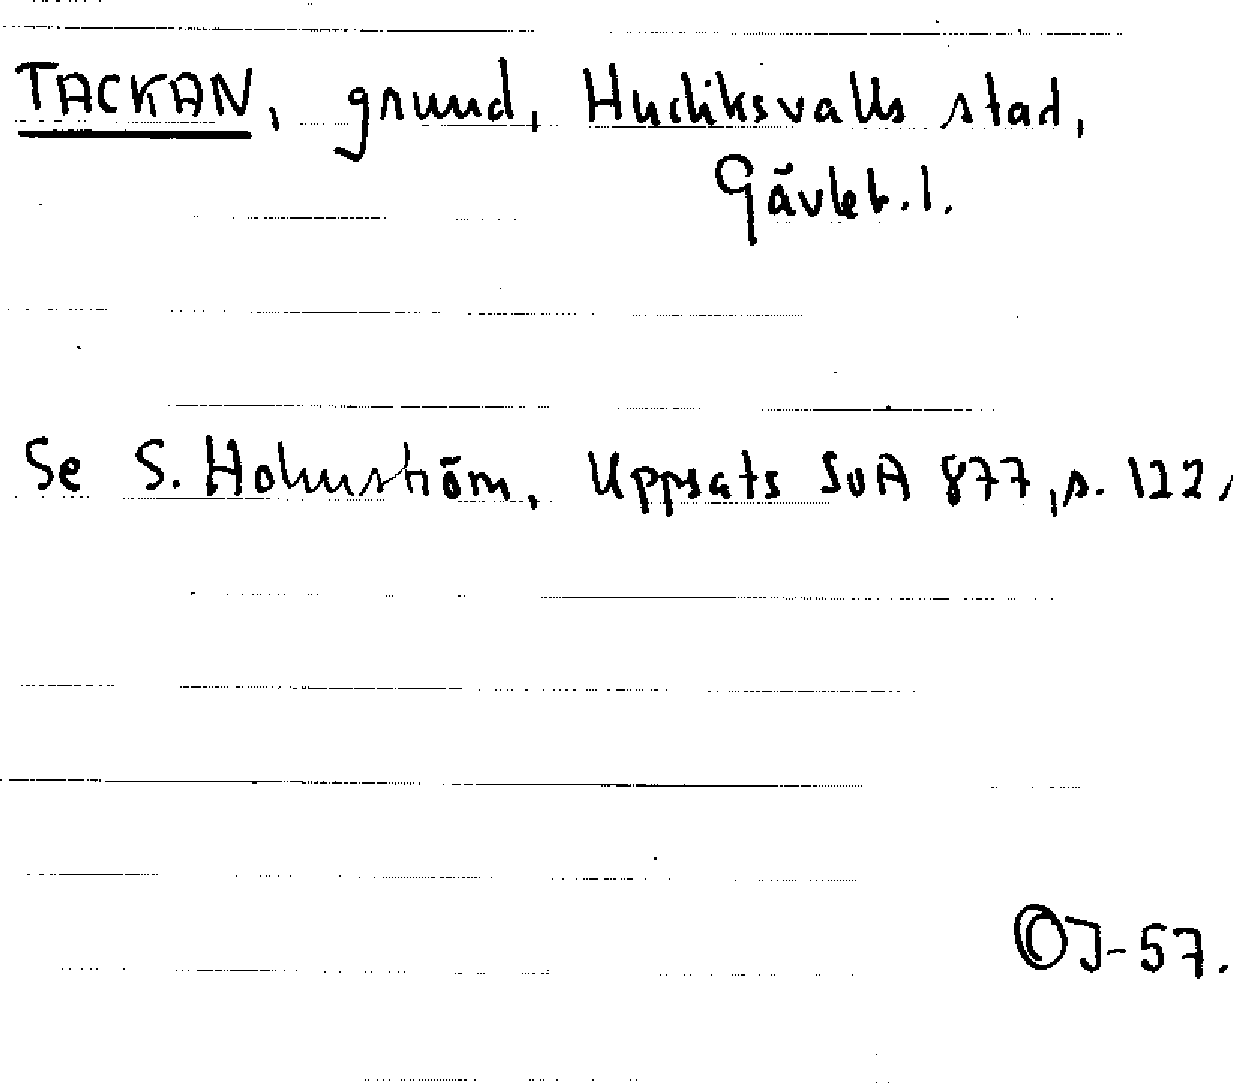 TACKAN, grund, Hudiksvalls stad,
Gävleb.l.
Se S. Holmström, Uppsats SoA 877, s. 122,
OJ-57.